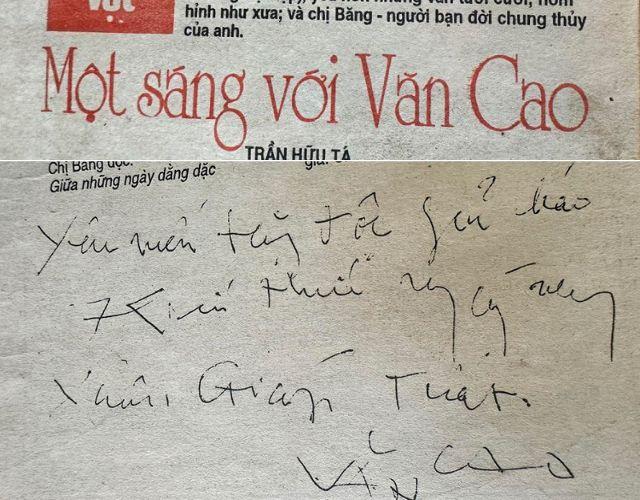 vọt
hỉnh như xưa; và chị Băng - người bạn đời chung thủy
của anh.
Một sáng với Văn Cao
TRẦN HỮU TÁ
Chị Băng đọc:
Giữa những ngày dằng dặc
Yêu mến tặng tôi gửi báo
Kiến thức ngày nay
Xuân Giáp Tuất.
VĂN CAO